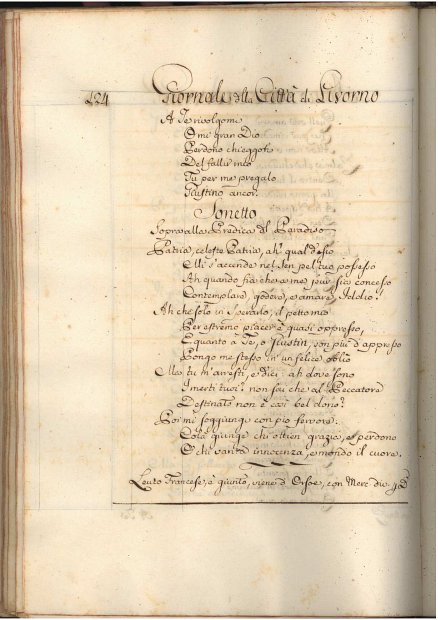 124 Giornale della Città di Livorno
A Te rivolgomi
O mi gran Dio
Perdono chieggoti
Del fallir mio
Tu per me pregalo
Giustino ancor.
Sonetto
Sopra alla Predica del Paradiso
Patria, celeste Patria, ah qual desio
Mi s'accende nel sen pel tuo possesso
Ah quando fia che a me pur sia concesso
Contemplare, godere, e amare Iddio!
Ah che solo in sperarlo, il petto mio
Per estremo piacer è quasi oppresso,
E quanto a Te, o Giustin, son più d'appresso
Pongo me stesso in un felice oblio
Ma tu m'arresti, e dici: ah dove sono
I merti tuoi? non sai che al Peccatore
Destinato non è così bel dono?
Poi mi soggiungi con pio fervore:
Colà giunge chi ottien grazia, e perdono
O chi vanta innocenza, e mondo il cuore.
Leuto Francese, è giunto, viene d con Merc. div.